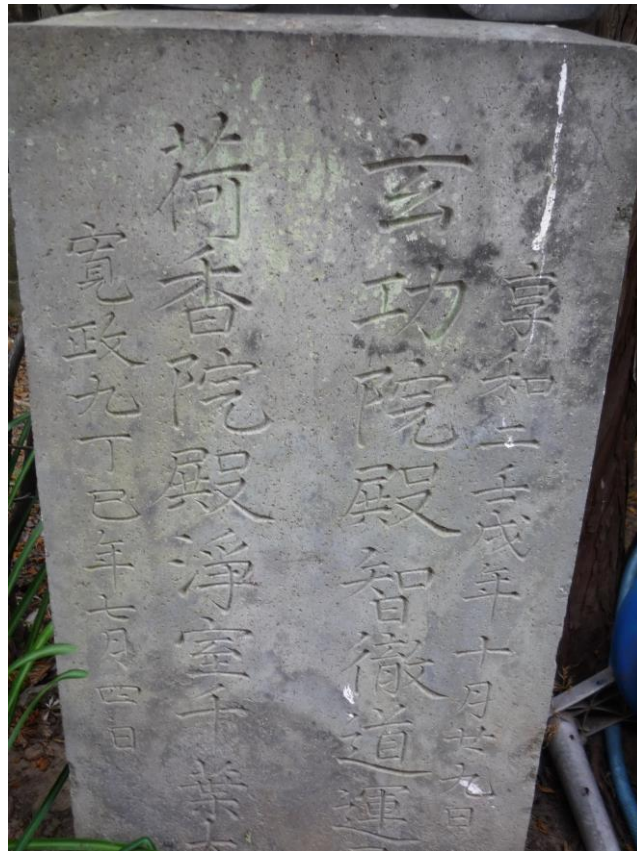 享和二壬戌年十月廿九日
玄功院殿智徹道運
荷香院殿淨室千葉大
寛政九丁巳年七月四日